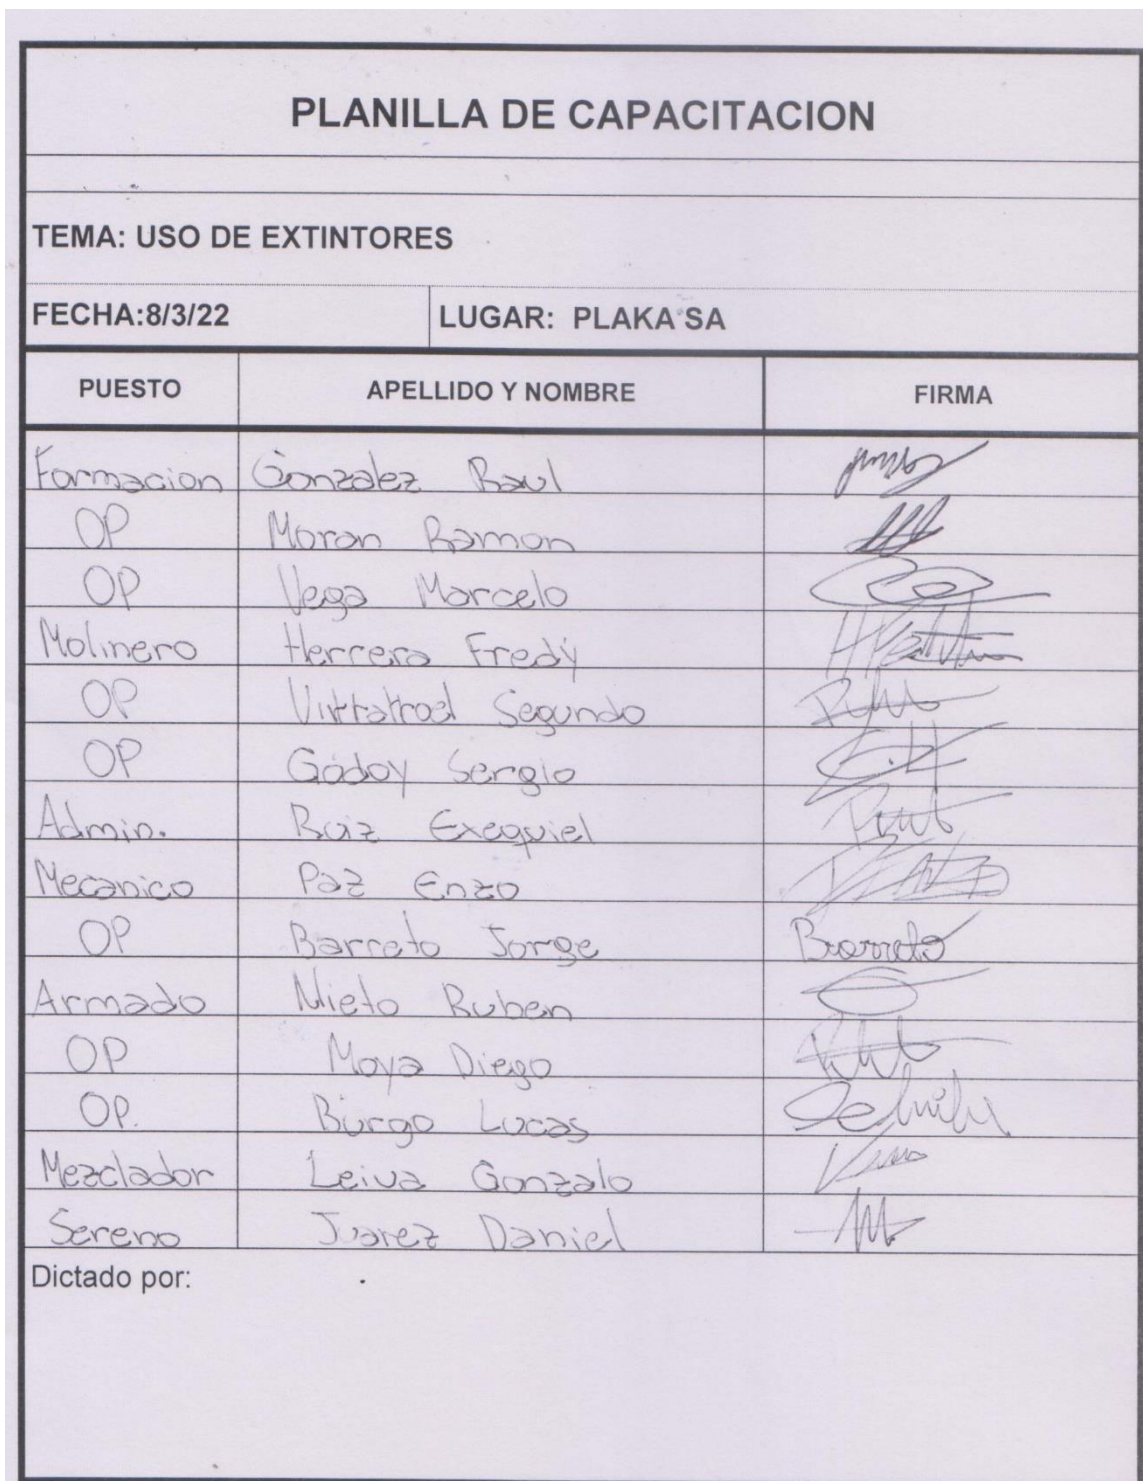 PLANILLA DE CAPACITACION
TEMA: USO DE EXTINTORES
FECHA:8/3/22 LUGAR: PLAKA SA
PUESTO APELLIDO Y NOMBRE FIRMA
Formacion Gonzalez Raul
OP Moran Ramon
OP Vega Marcelo
Molinero Herrera Fredy
OP Segundo
OP Godoy Sergio
Admin. Ruiz Exequiel
Mecanico Paz Enzo
OP Barreto Jorge Barreto
Armado Nieto Ruben
OP Moya Diego
OP. Burgo Lucas
Mezclador Leiva Gonzalo
Sereno Juarez Daniel
Dictado por: